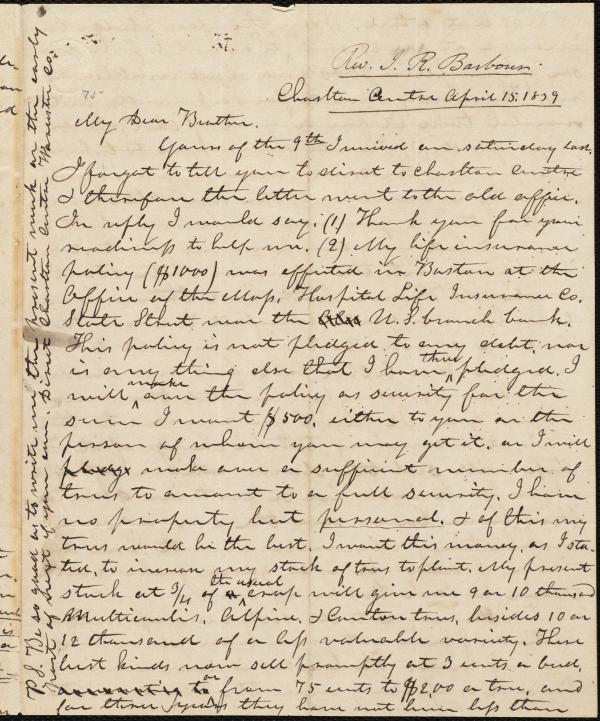 Rev. J. R. Barbour.
Charlton Centre April 15. 1839
75-
My Dear Brother.
Yours of the 9th I received on saturday last.
I forgot to tell you to direct to Charlton Centre
& therefore the letter went to the old office.
In reply I would say. (1) Thank you for your
readiness to help me. (2) My life insurance
policy ($1000) was effected in Boston at the
Office of the Mass. Hospital Life Insurance Co.
State Street near the U. S. branch bank.
This policy is not pledged to any debt, nor
is any thing else that I have thus pledged. I
will make over the policy as security for the
sum I want $500. either to you or the
person of whom you may get it. or I will
pledge make over a sufficient number of
trees to amount to a full security. I have
no property but personal. & of this my
trees would be the best. I want this money, as I sta-
ted, to increase my stock of trees to plant. My present
stock at 3/4 of the usual crop will give me 9 or 10 thousand
Multicaulis, Alpine, & Canton trees, besides 10 or
12 thousand of a less valuable variety. These
best kinds now sell promptly at 3 cents a bud,
or from 75 cents to $2,00 a tree, and
for three years they have not been less than
P.S. Be so good as to write me the present week or the early
part of next if you can. Direct Charlton Centre Worcester Co.